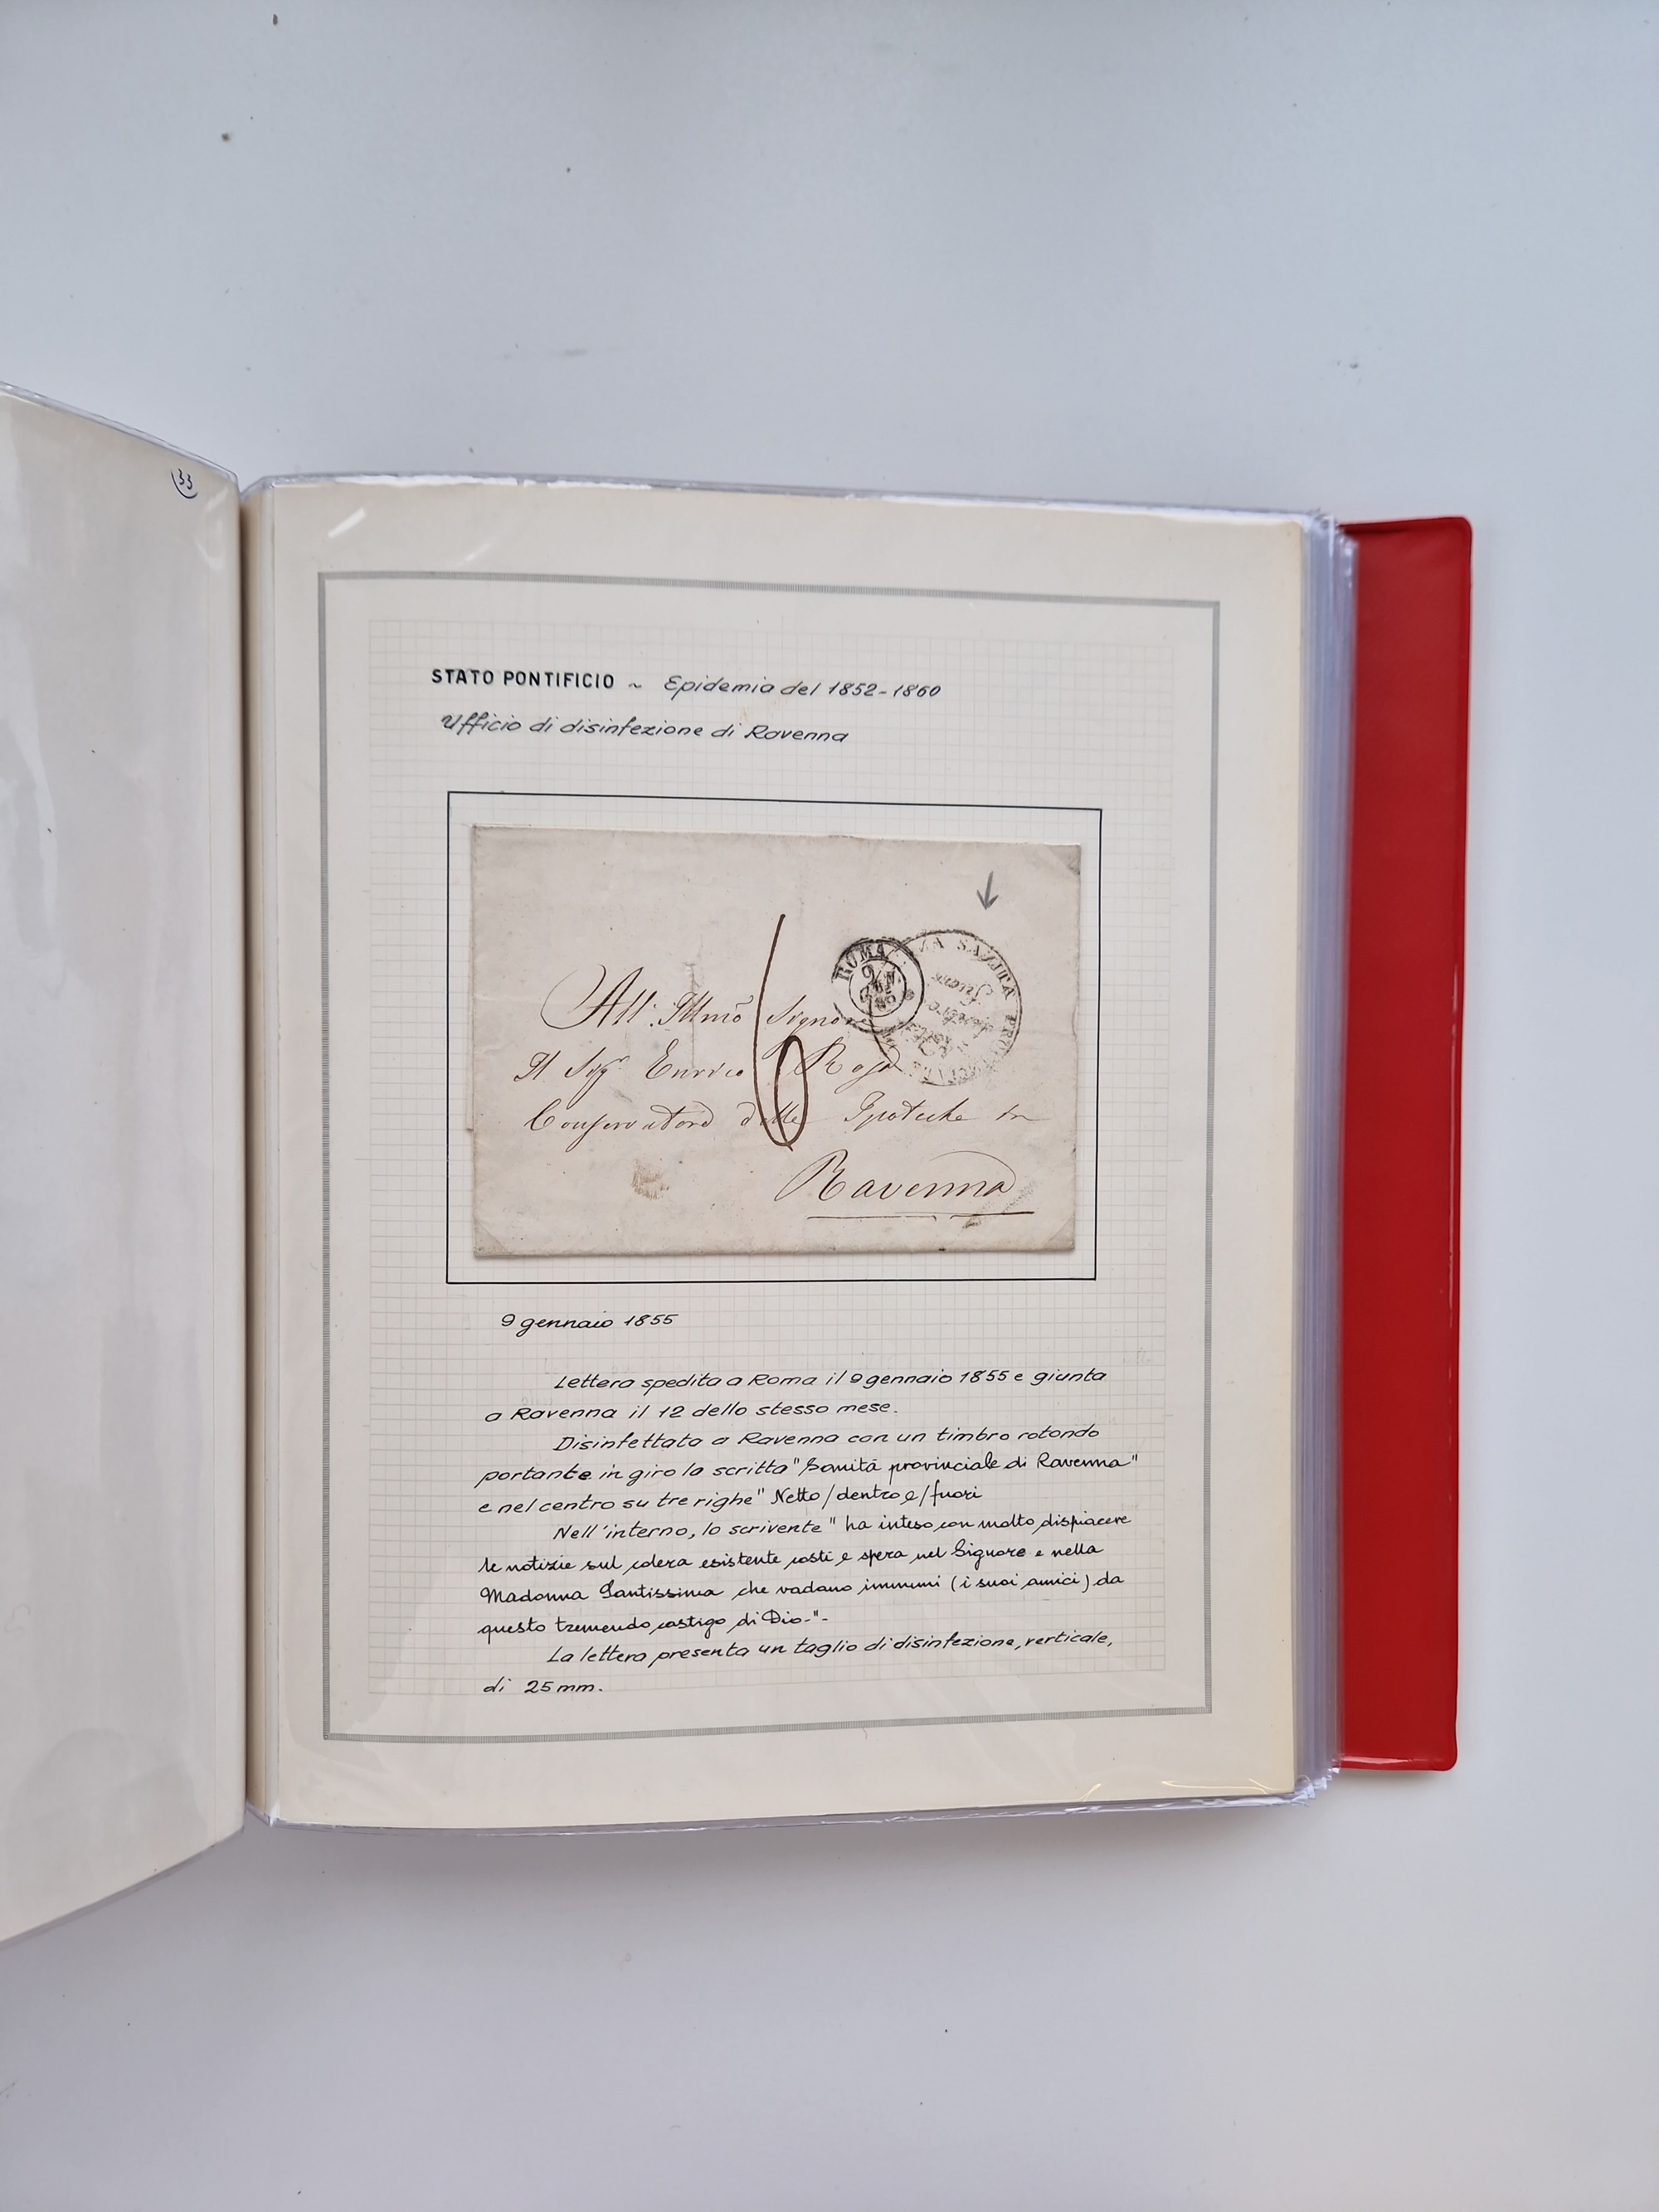 33
STATO PONTIFICIO ~ Epidemia del 1852-1860
Ufficio di disinfezione di Ravenna
ROMA
9
SANITA PROVINCIALE
fuori
All' Illmo Signore
Il Sigr Enrico Rasi
Conservatore delle Ipoteche in
Ravenna
9 gennaio 1855
Lettera spedita a Roma il 9 gennaio 1855 e giunta
a Ravenna il 12 dello stesso mese.
Disinfettata a Ravenna con un timbro rotondo
portante in giro la scritta "Sanità provinciale di Ravenna"
e nel centro su tre righe "Netto/dentro e/fuori
Nell'interno, lo scrivente "ha inteso con molto dispiacere
le notizie sul colera esistente costì e spera nel Signore e nella
Madonna Santissima che vadano immuni (i suoi amici) da
questo tremendo castigo di Dio-"-
La lettera presenta un taglio di disinfezione, verticale,
di 25 mm.